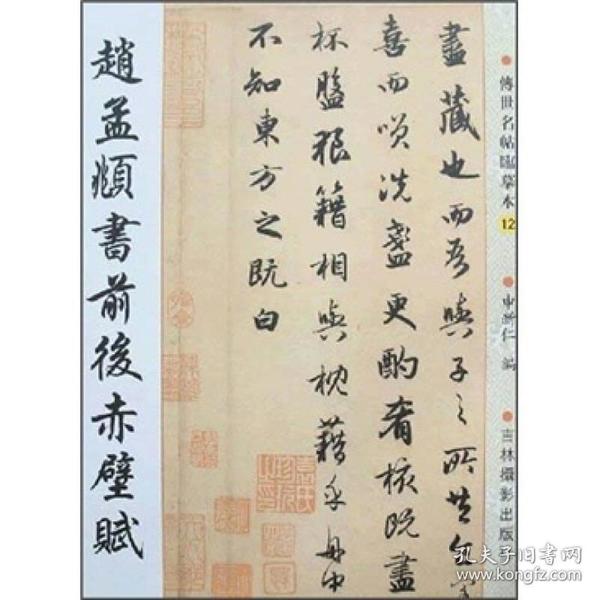 傳世名帖臨摹本 12
編
吉林攝影出版
盡藏也而吾與子之所共食
喜而笑洗盞更酌肴核既盡
杯盤狼籍相與枕藉乎舟中
不知東方之既白
趙孟頫書前後赤壁賦
孔夫子旧书网
www.kongfz.com